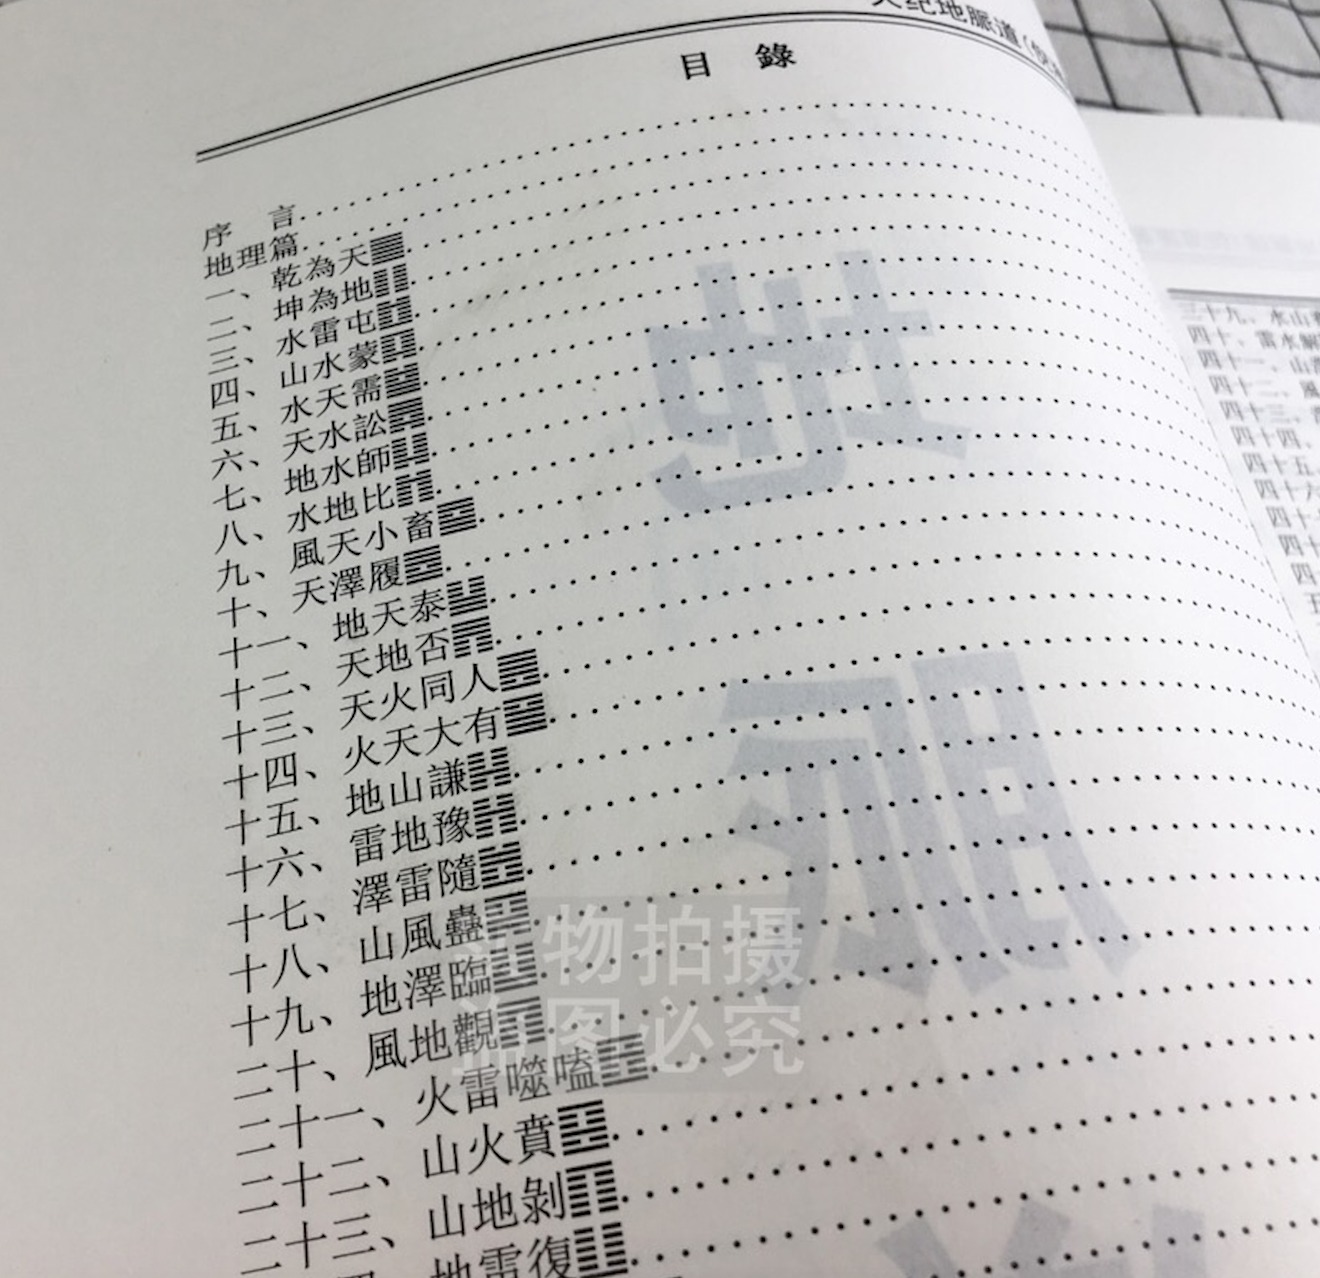 天纪地脈道
目 錄
序 言
地理篇
一、 乾為天䷀
二、 坤為地䷁
三、 水雷屯䷂
四、 山水蒙䷃
五、 水天需䷄
六、 天水訟䷅
七、 地水師䷆
八、 水地比䷇
九、 風天小畜䷈
十、 天澤履䷉
十一、 地天泰䷊
十二、 天地否䷋
十三、 天火同人䷌
十四、 火天大有䷍
十五、 地山謙䷎
十六、 雷地豫䷏
十七、 澤雷隨䷐
十八、 山風蠱䷑
十九、 地澤臨䷒
二十、 風地觀䷓
二十一、 火雷噬嗑䷔
二十二、 山火賁䷕
二十三、 山地剝䷖
地雷復䷗
三十九、水山
四十、雷水解
四十一、山
四十二、風
四十三、
四十四、
四十五、
四十六
四十
四十
四
五
地
脈
实物拍摄
盗图必究